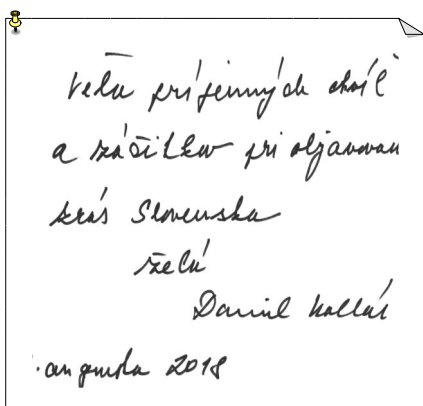 Veľa príjemných chvíľ
a zážitkov pri objavovaní
krás Slovenska
želá
Daniel Kollár
. augusta 2018